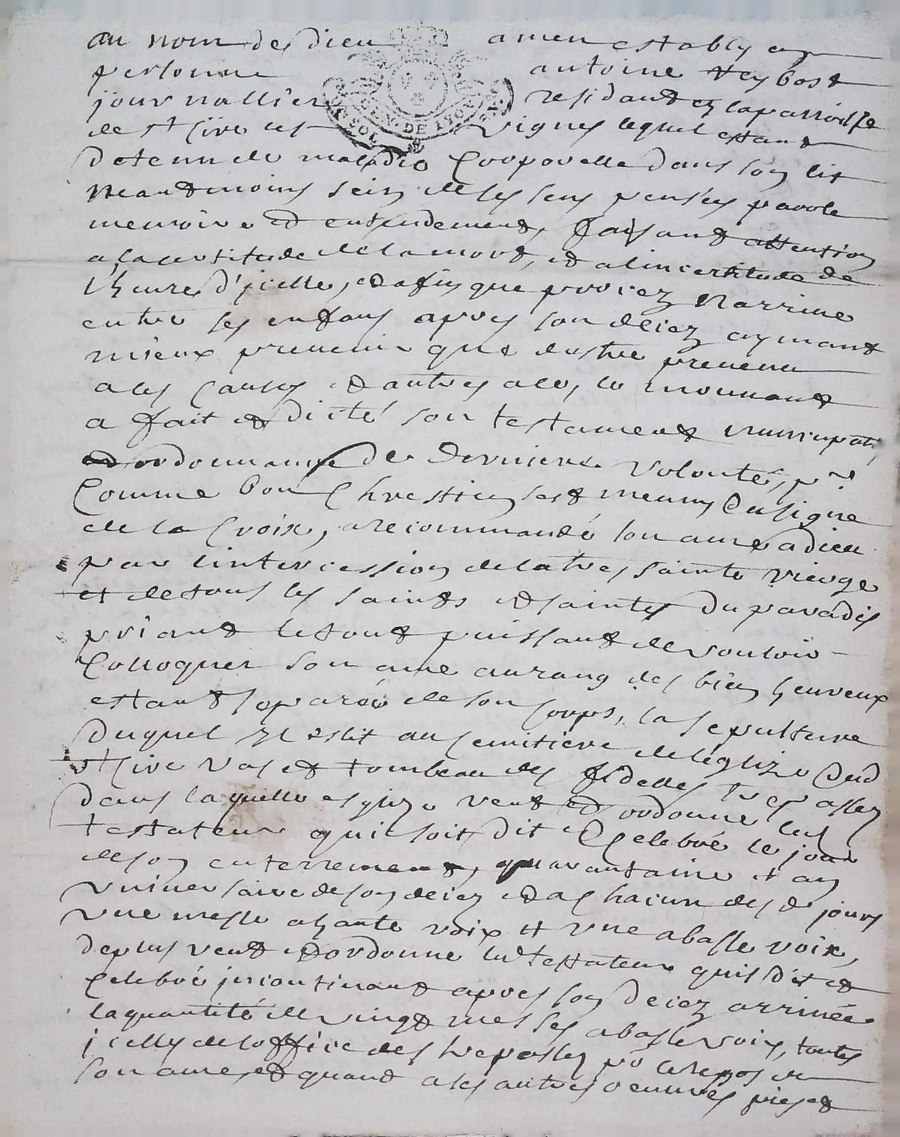 au nom de dieu amen estably en
personne antoine teybost
journallier residant en la parroisse
de st Cire les vignes lequel estant
detenu de maladie Corporelle dans son lit
neaudmoins sein de ses sens pensées parole
memoire et entendement, faisant attention
a la certitude de la mort, et a lincertitude de
lheure d'jcelle, et afin que procez narrive
entre ses enfans apres son decez aymant
mieux prevenir que destre prevenu
a ces causes et autres a ce le mouvant
a fait et dicté son testament nuncupatif
et ordonnance de derniere volonté, pr
Comme bon Chrestien sest meuny du signe
de la Croix, a recommandé son ame a dieu
par lintercession de la tres sainte vierge
et de tous les saints et saintes du paradis
priant le tout puissant de vouloir
Colloquer son ame au rang des bien heureux
estant separée de son corps, la sepulture
duquel jl eslit au cemitiere de leglize dud
st Cire vas et tombeau des fidelles trespasses
dans laquelle esglize veut et ordonne led
testateur qui soit dit et Celebré le jour
de son enterrement, quarantaine et an
universaire de son decez et a chacun des d jours
une messe a haute voix et une a basse voix,
de plus veut et ordonne led testateur quil soit dit et
Celebré jncontinant apres son decez arrivée
la quantité de vingt messes a basse voix, toutes
jcelles de loffice des trepasses po le repos de
son ame, et quand a ses autres oeuvres pies et